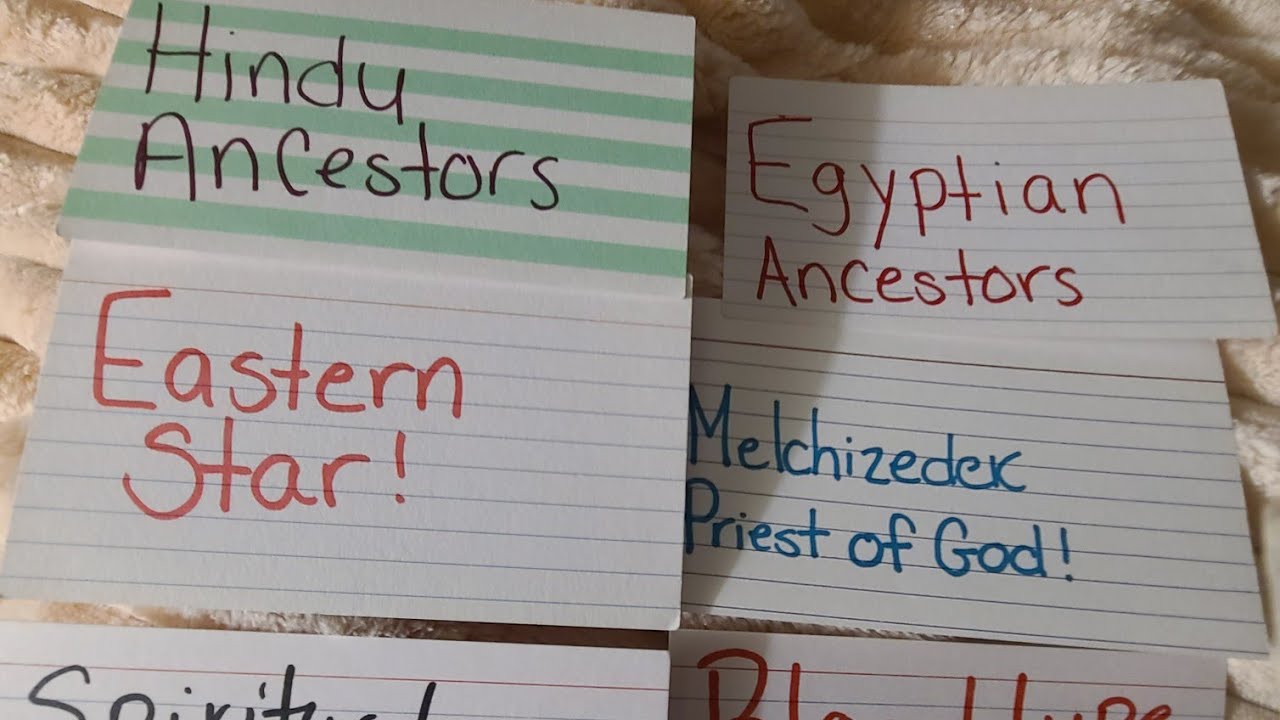 Hindu
Ancestors
Egyptian
Ancestors
Eastern
Star!
Melchizedek
Priest of God!
Spiritual